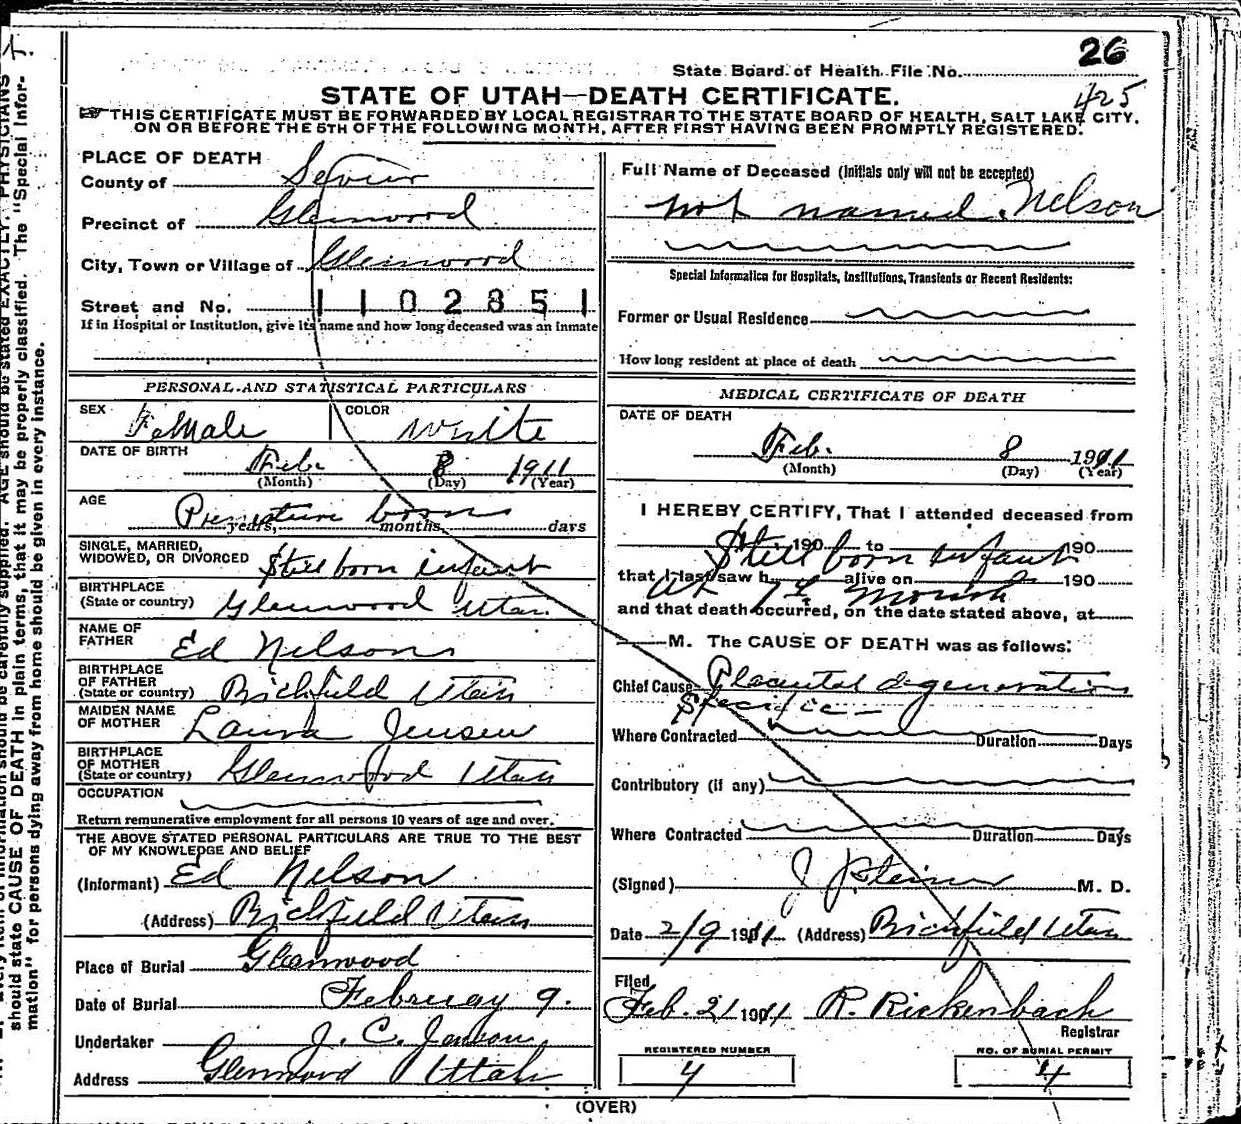 26
State Board of Health File No.
425
STATE OF UTAH—DEATH CERTIFICATE.
THIS CERTIFICATE MUST BE FORWARDED BY LOCAL REGISTRAR TO THE STATE BOARD OF HEALTH, SALT LAKE CITY,
ON OR BEFORE THE 5TH OF THE FOLLOWING MONTH, AFTER FIRST HAVING BEEN PROMPTLY REGISTERED.
PLACE OF DEATH
County of Sevier
Precinct of Glenwood
City, Town or Village of Glenwood
Street and No. 1102851
If in Hospital or Institution, give its name and how long deceased was an inmate
PERSONAL AND STATISTICAL PARTICULARS
SEX Female COLOR White
DATE OF BIRTH Feb. 8 1911
(Month) (Day) (Year)
AGE Premature born
years, months, days
SINGLE, MARRIED,
WIDOWED, OR DIVORCED Still born infant
BIRTHPLACE
(State or country) Glenwood Utah
NAME OF
FATHER Ed Nelson
BIRTHPLACE
OF FATHER
(State or country) Richfield Utah
MAIDEN NAME
OF MOTHER Laura Jensen
BIRTHPLACE
OF MOTHER
(State or country) Glenwood Utah
OCCUPATION
Return remunerative employment for all persons 10 years of age and over.
THE ABOVE STATED PERSONAL PARTICULARS ARE TRUE TO THE BEST
OF MY KNOWLEDGE AND BELIEF
(Informant) Ed Nelson
(Address) Richfield Utah
Place of Burial Glenwood
Date of Burial February 9.
Undertaker J. C. Jenson
Address Glenwood Utah
Full Name of Deceased (Initials only will not be accepted)
not named. Nelson
Special Information for Hospitals, Institutions, Transients or Recent Residents:
Former or Usual Residence
How long resident at place of death
MEDICAL CERTIFICATE OF DEATH
DATE OF DEATH
Feb. 8 1911
(Month) (Day) (Year)
I HEREBY CERTIFY, That I attended deceased from
190 to 190
Still born infant
that I last saw h alive on 190
at 7th month
and that death occurred, on the date stated above, at
M. The CAUSE OF DEATH was as follows:
Chief Cause Placental degeneration
Specific
Where Contracted Duration Days
Contributory (if any)
Where Contracted Duration Days
(Signed) J J Steiner M. D.
Date 2/9 1911 (Address) Richfield Utah
Filed
Feb. 21 1911 R. Rickenbach
Registrar
REGISTERED NUMBER
4
NO. OF BURIAL PERMIT
4
(OVER)
should state CAUSE OF DEATH in plain terms, that it may be properly classified. The "Special Infor-
mation" for persons dying away from home should be given in every instance.